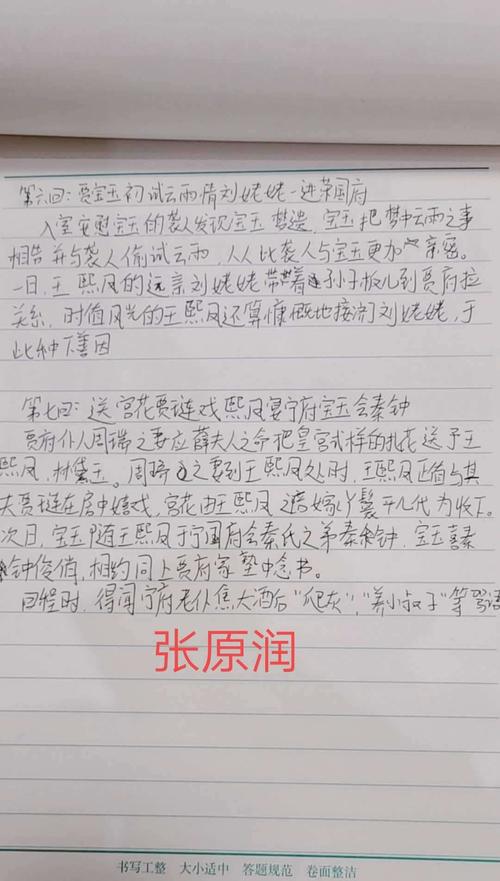 第六回:贾宝玉初试云雨情刘姥姥一进荣国府
入室安慰宝玉的袭人发现宝玉梦遗,宝玉把梦中云雨之事
相告并与袭人偷试云雨,从此袭人与宝玉更加亲密。
一日,王熙凤的远亲刘姥姥带着孙子板儿到贾府拉
关系,时值风光的王熙凤还算慷慨地接济刘姥姥,于
此种下善因
第七回:送宫花贾琏戏熙凤宴宁府宝玉会秦钟
贾府仆人周瑞之妻应薛夫人之命把皇宫式样的扎花送予王
熙凤,林黛玉。周瑞之妻到王熙凤处时,王熙凤正值与其
夫贾琏在房中嬉戏,宫花由王熙凤遣嫁丫鬟平儿代为收下。
次日,宝玉随王熙凤于宁国府会秦氏之弟秦钟,宝玉喜秦
钟俊俏,相约同上贾府家塾中念书。
回程时,得闻宁府老仆焦大酒后"爬灰","养小叔子"等骂语
张原润
书写工整 大小适中 答题规范 卷面整洁